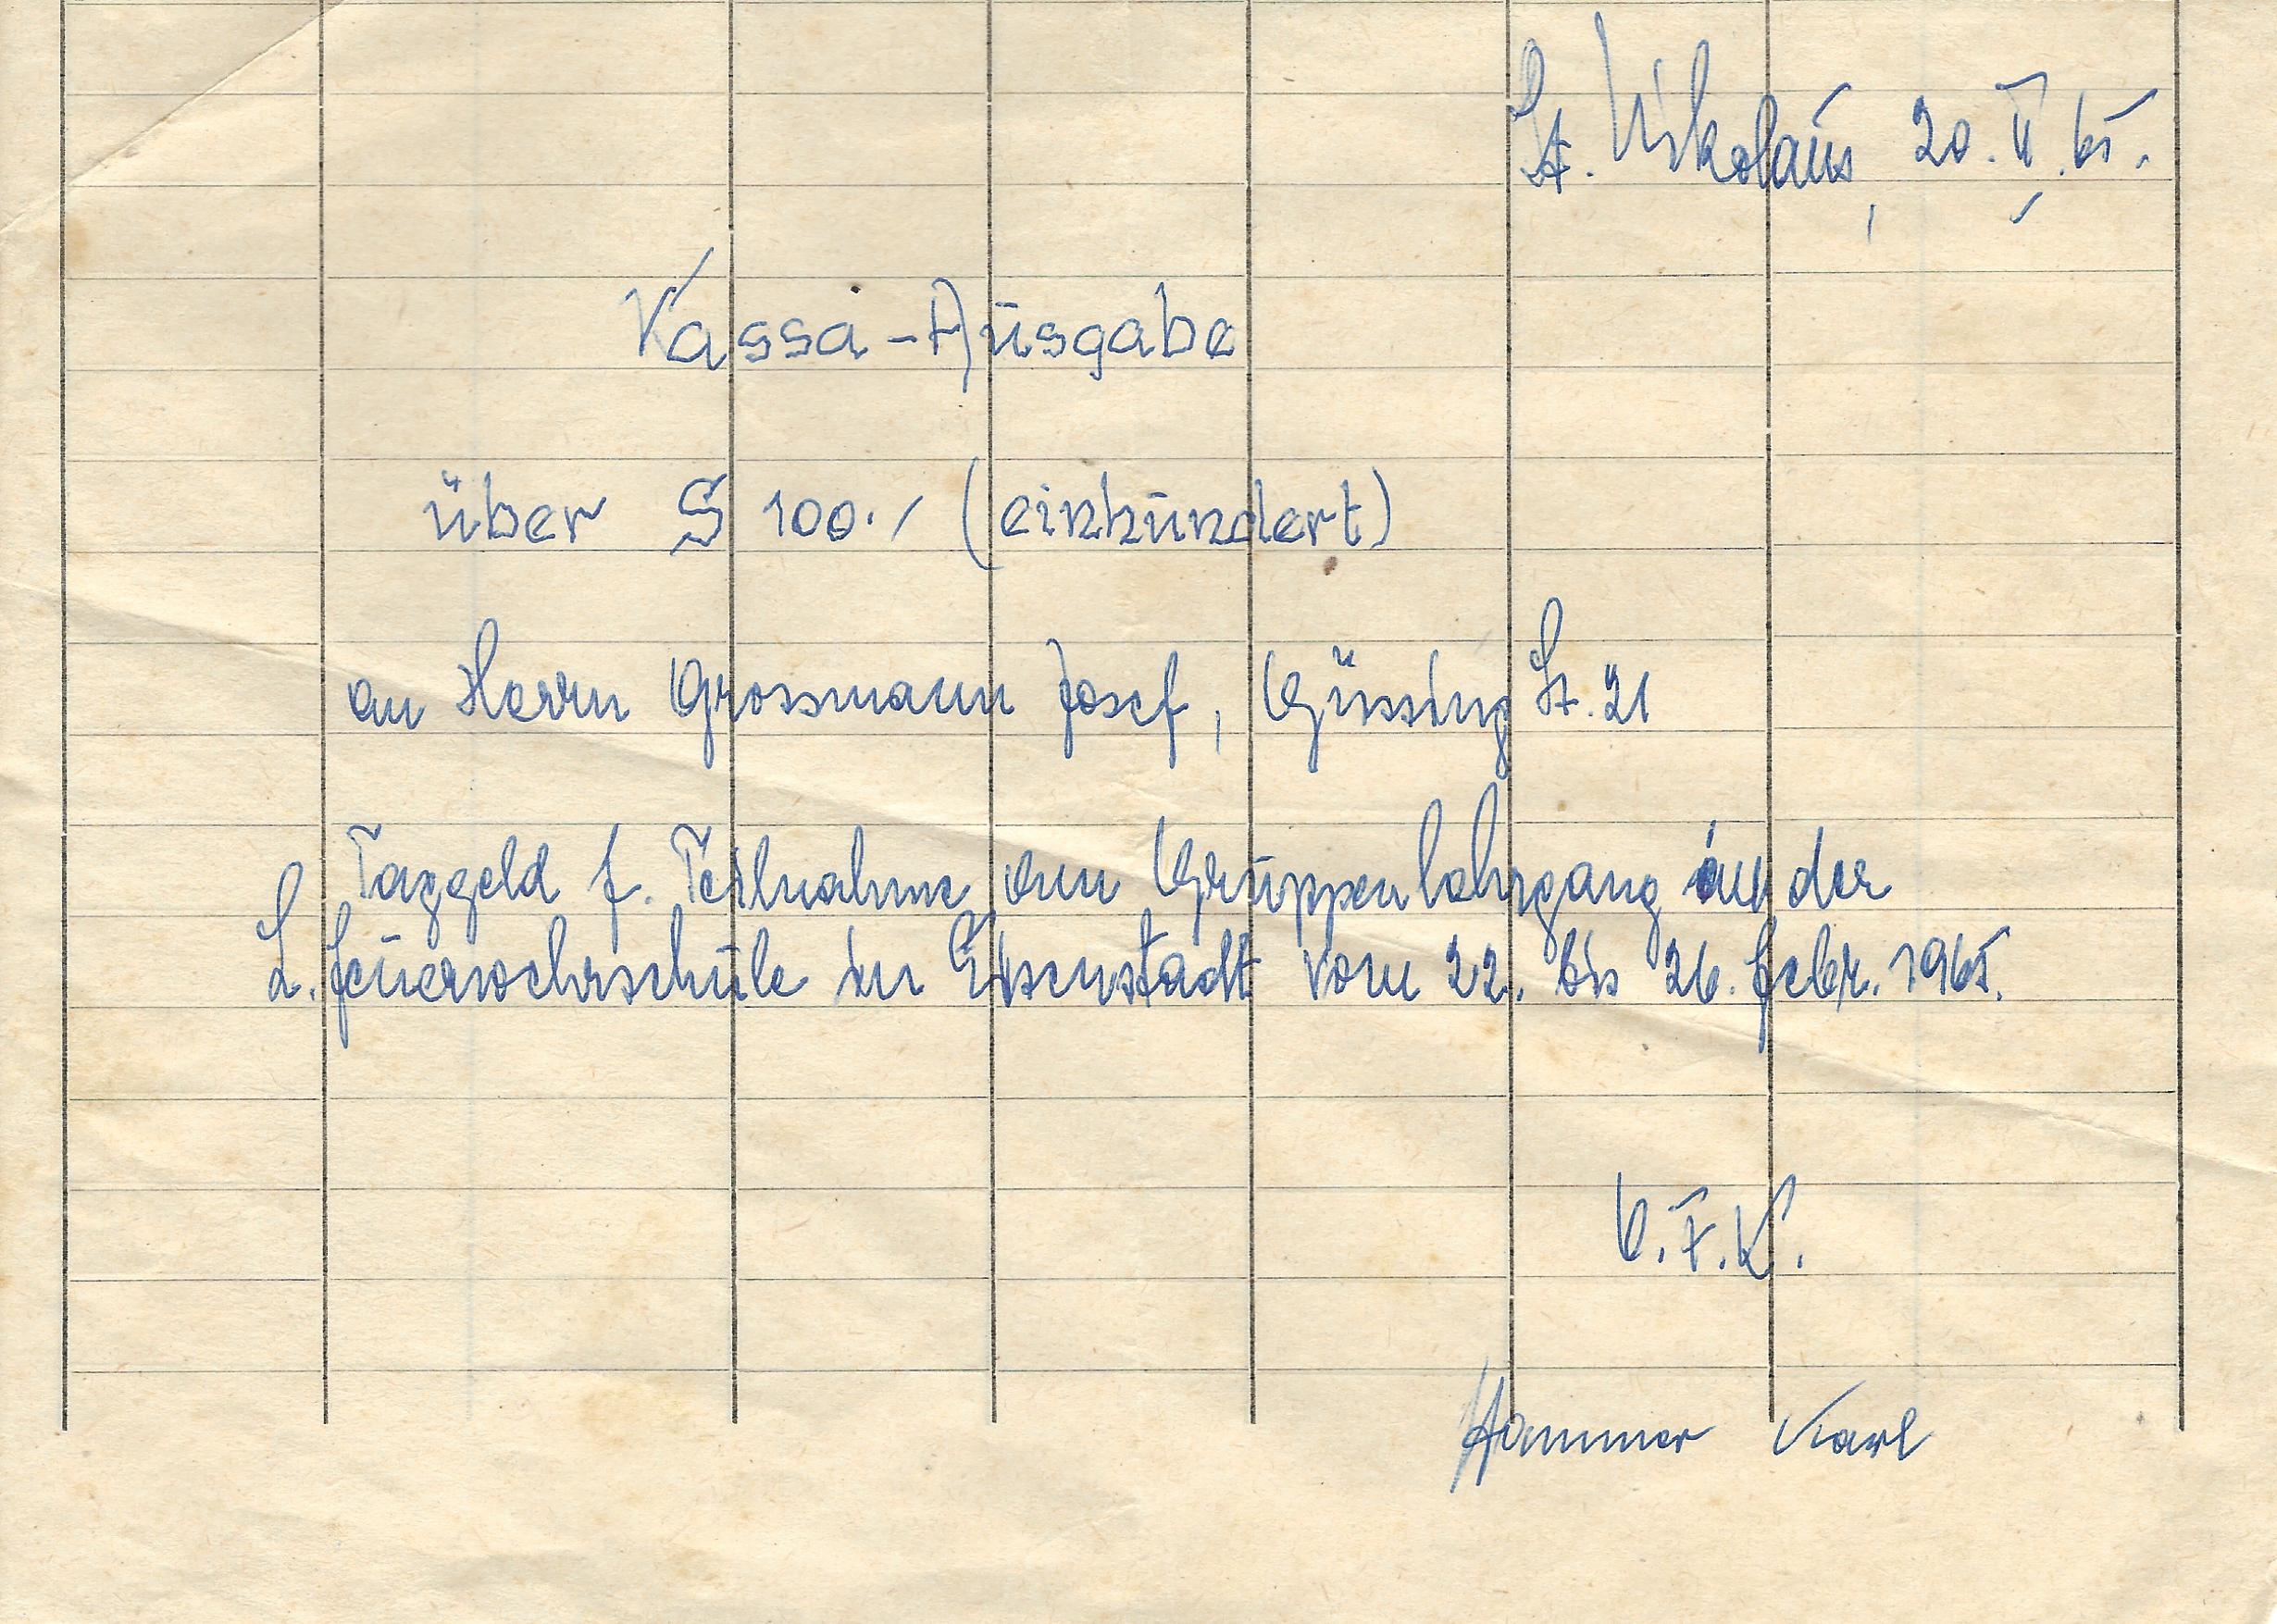 St. Nikolaus, 20. II. 65.
Kassa-Ausgabe
über S 100.- (einhundert)
an Herrn Grossmann Josef, Güssing St. 21
Taggeld f. Teilnahme am Gruppenlehrgang in der
L. Feuerwehrschule in Eisenstadt vom 22. bis 26. Febr. 1965.
O.F.K.
Hammer Karl